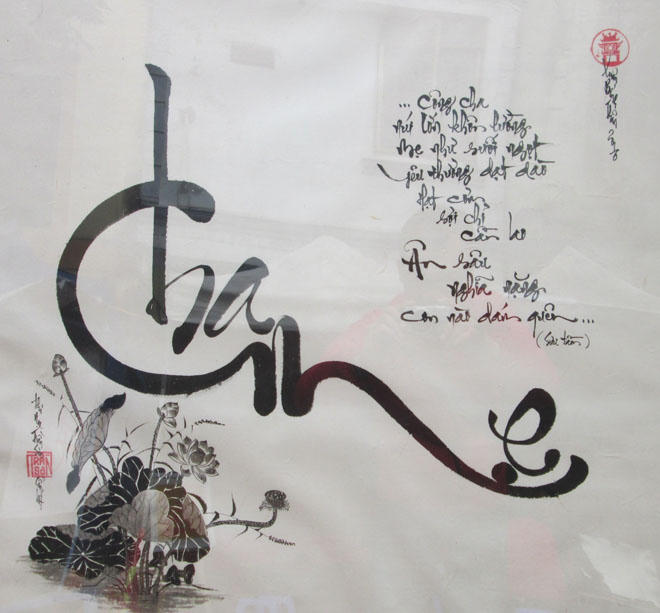 Cha Mẹ
... công cha
núi lớn khôn lường
mẹ như suối ngọt
yêu thương dạt dào
hạt cơm
sợi chỉ
cần lao
Ân sâu
nghĩa nặng
con nào dám quên...
(Sưu tầm)
TRẦN